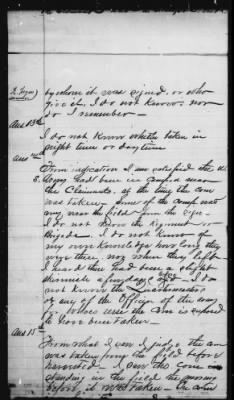 by whom it was signed, or who
give it. I do not know nor
do I remember —
Ans 13th
I do not know whether taken in
night time or day time
Ans 14th
From indication I am satisfied the
had been in Camp near
the Claimants, at the time the corn
was taken — some of the Camp was
the field from the
I do not know the Regiment or
Brigade. I do not know of
my own knowledge how long they
were there, nor when they left
I heard there had been a slight
a few days I do
not know the Quartermasters
or any of the Officers of the army
for whose use the corn is supposed
to have been taken.
Ans 15th
From what I saw I judge the corn
was taken from the field before
harvested — I saw the corn
standing in the field the morning
before it was taken — the corn